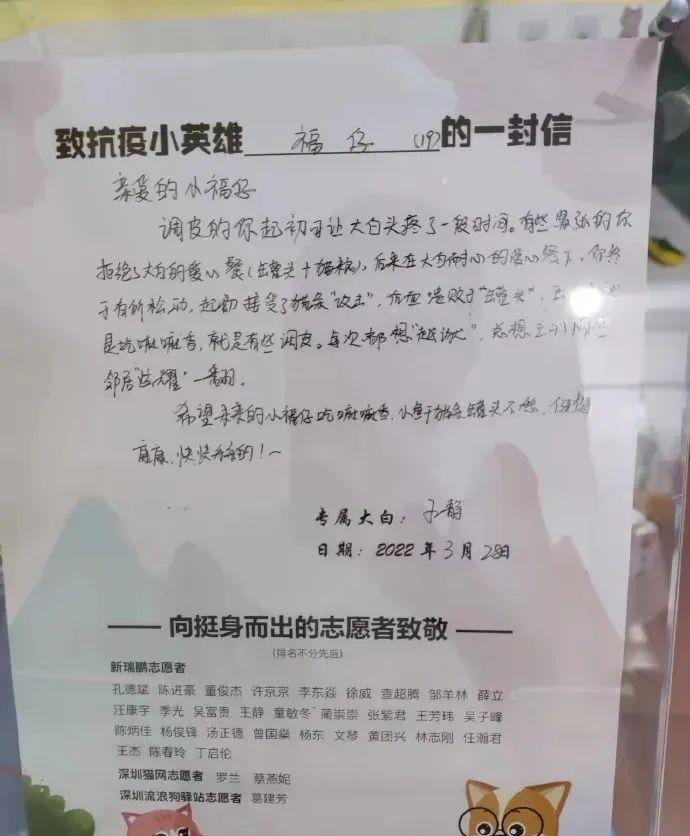 致抗疫小英雄 福仔 (19) 的一封信
亲爱的小福仔
调皮的你起初可让大白头疼了一段时间。有些紧张的你
拒绝了大白的爱心餐(罐头+猫粮),后来在大白耐心的爱心餐下,你终
于有所松动,起初接受了猫条“攻击”,后面溃败于“罐头”,
是吃嘛嘛香,就是有些调皮。每次都想“越狱”,总想
邻居“炫耀”一翻。
希望未来的小福仔吃嘛嘛香,小鱼干猫条罐头不愁,健健
康康、快快乐乐的!~
专属大白: 王静
日期: 2022年3月28日
—— 向挺身而出的志愿者致敬 ——
(排名不分先后)
新瑞鹏志愿者
孔德斌 陈进豪 董俊杰 许京京 李东焱 徐威 查超腾 邹羊林 薛立
汪康宇 季光 吴富贵 王静 童敏冬 蔺崇崇 张紫君 王芳玮 吴子峰
陈炳佳 杨俊锋 汤正德 曾国燊 杨东 文琴 黄团兴 林志刚 任瀚君
王杰 陈春玲 丁启伦
深圳猫网志愿者 罗兰 蔡燕妮
深圳流浪狗驿站志愿者 葛建芳